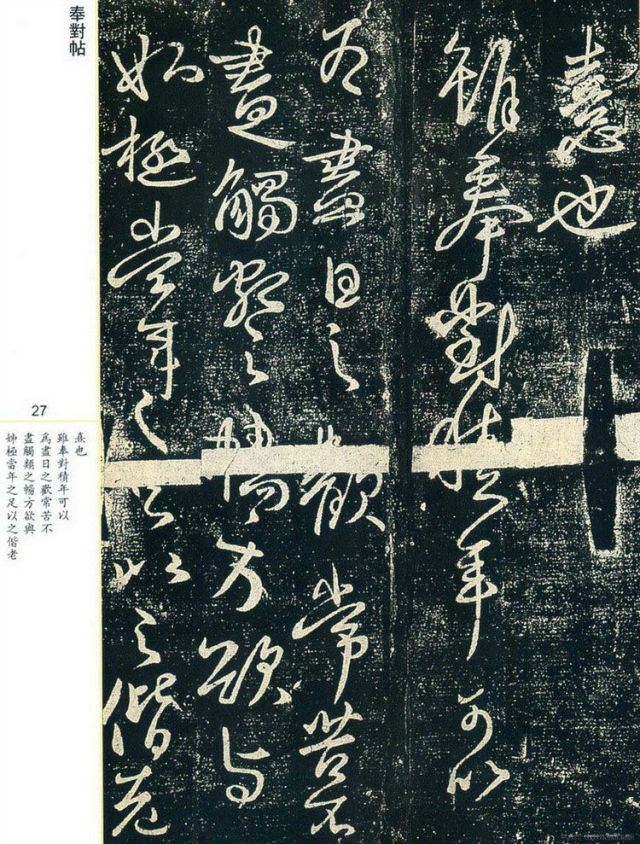 憙也
雖奉對積年可以
為盡日之歡常苦不
盡觸類之暢方欲與
姊極當年之足以之偕老
奉對帖
27
熹也
雖奉對積年可以
為盡日之歡常苦不
盡觸類之暢方欲與
姊極當年之足以之偕老